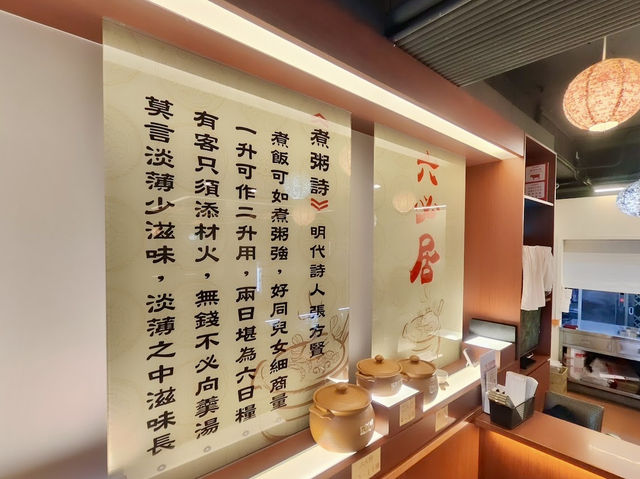 《煮粥詩》明代詩人張方賢
煮飯可如煮粥強，好同兒女細商量
一升可作二升用，兩日堪為六日糧
有客只須添材火，無錢不必向羹湯
莫言淡薄少滋味，淡薄之中滋味長
六必居